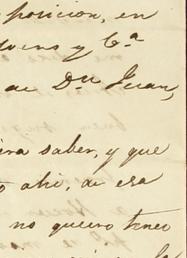 posicion, en
y Cª
de Dn Juan,
saber, y que
ahi, de esa
no quiero tener